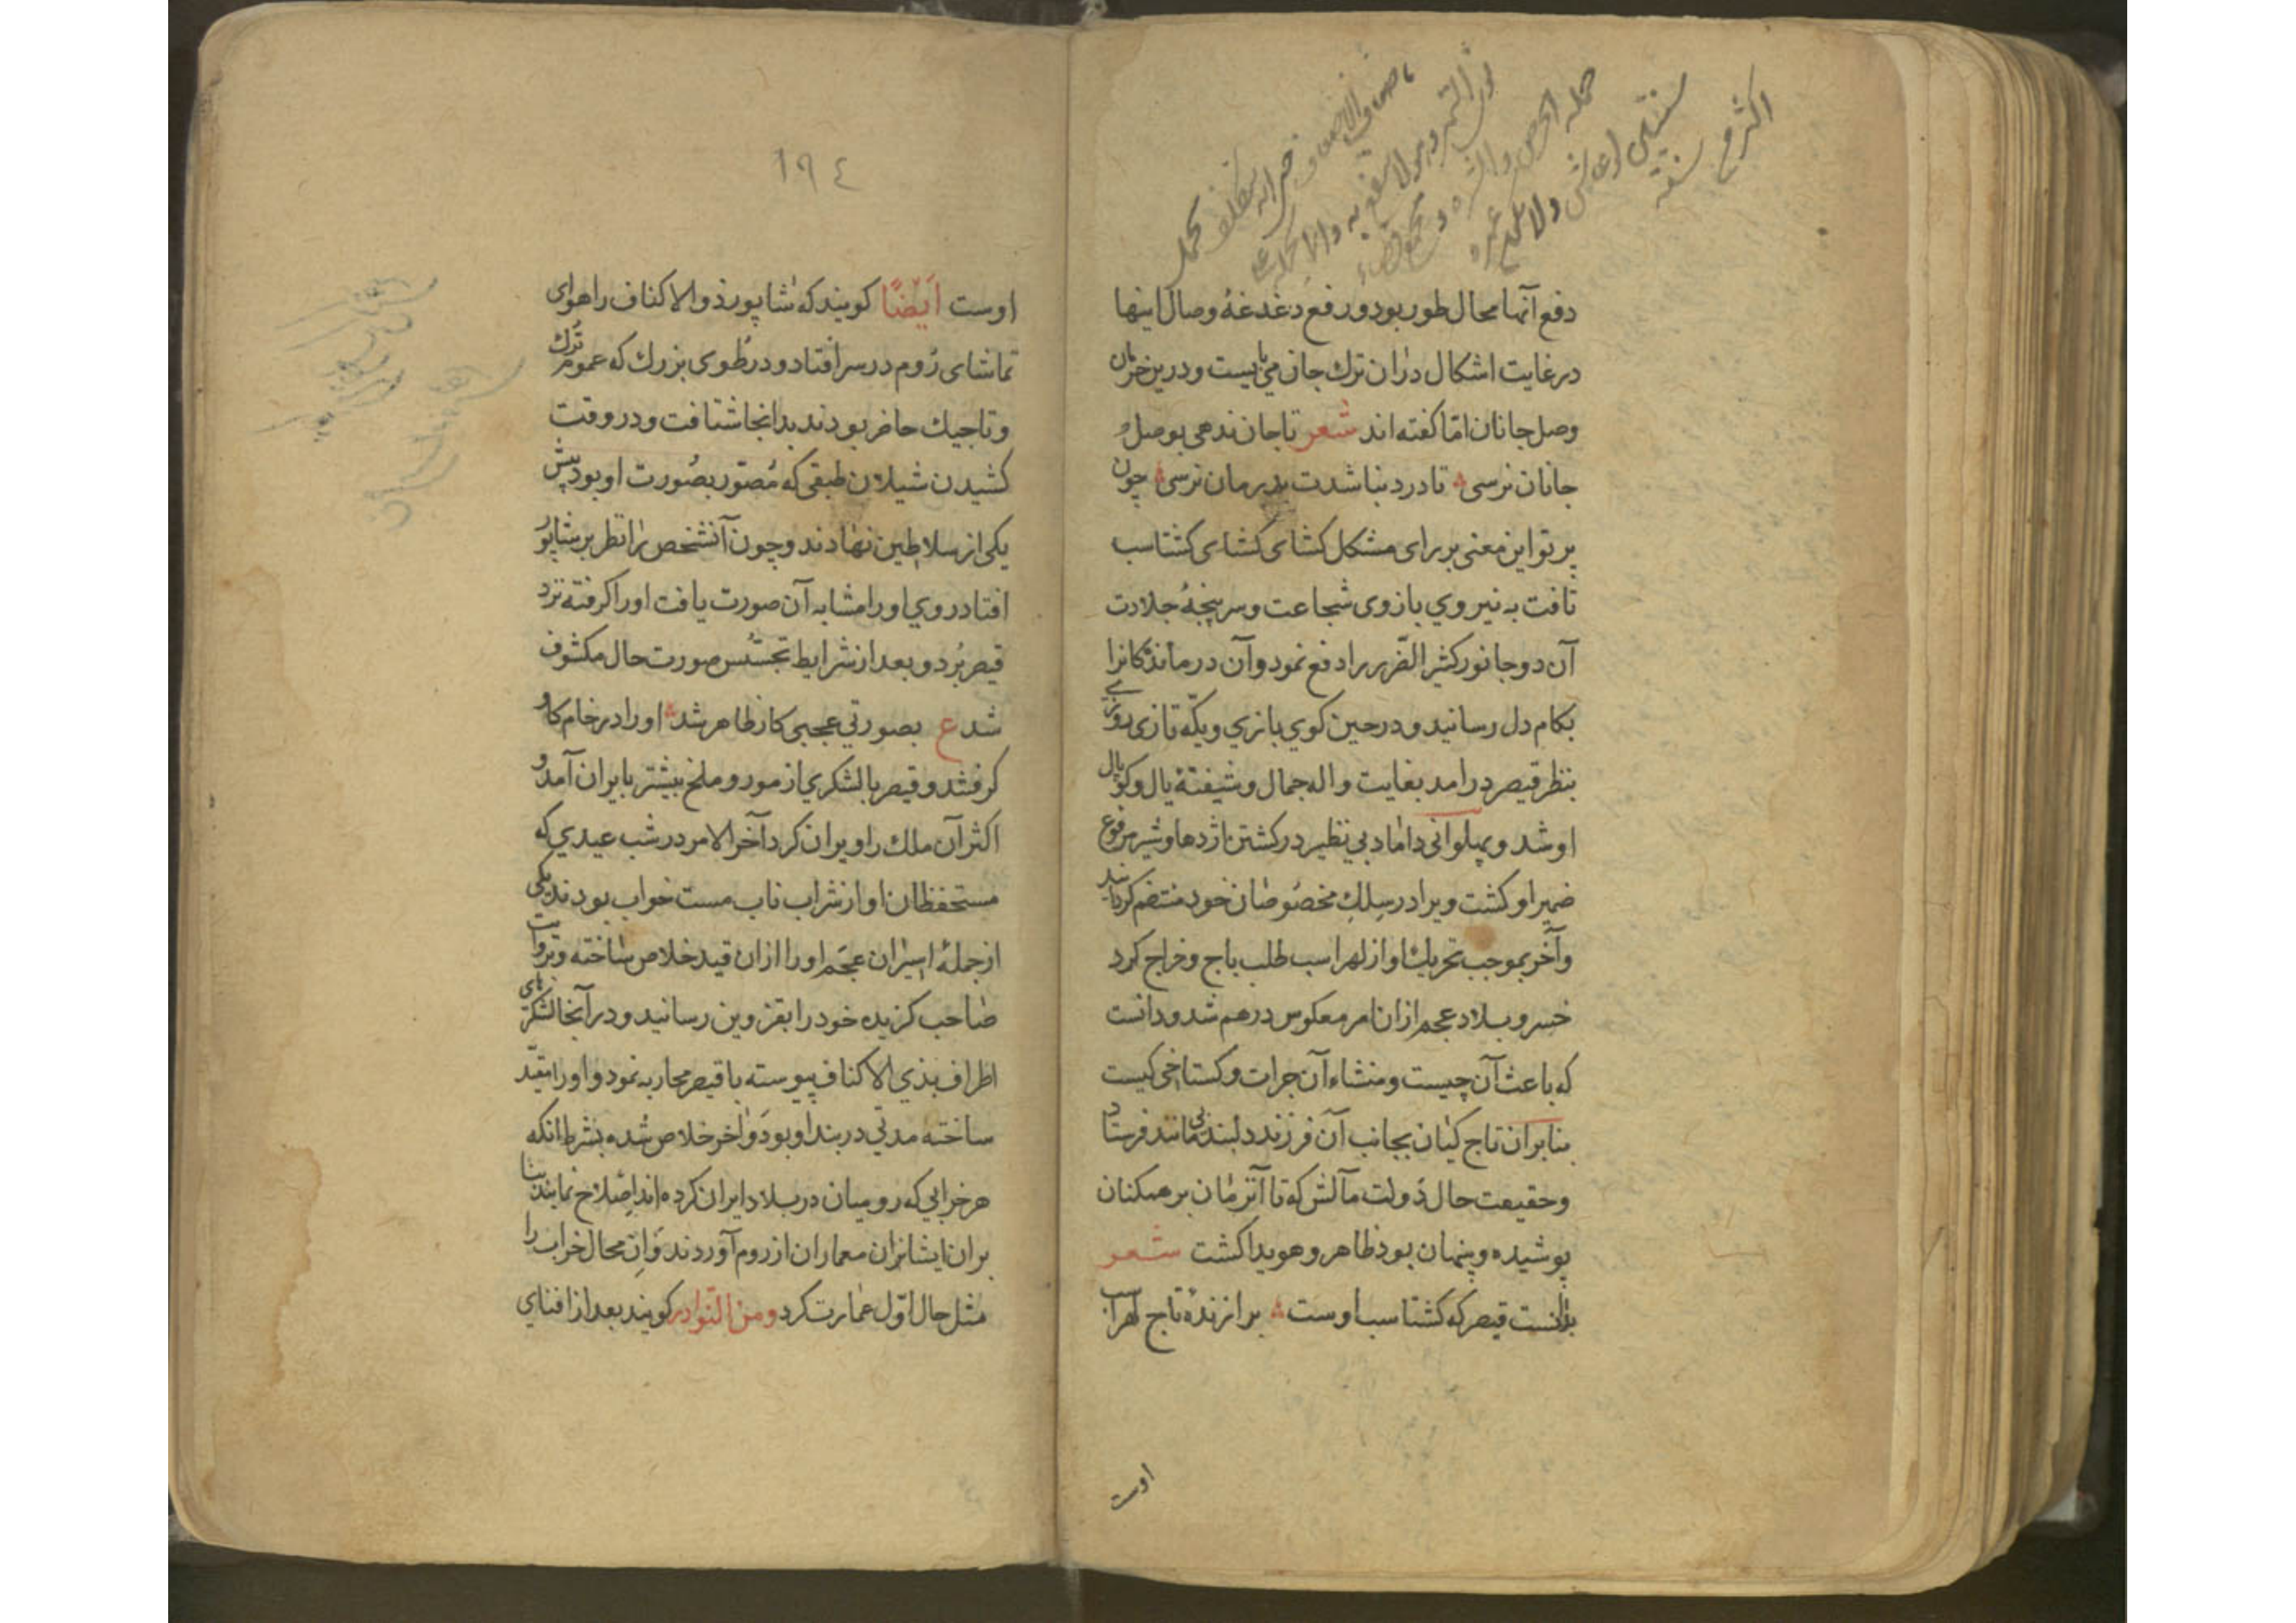 دفع آنها محال طور بود و رفع دغدغهٔ وصال اینها
در غایت اشکال دران ترک جان می بایست و درین خرمان
وصل جانان امّا کفته اند شعر تا جان ندهی بوصل
جانان نرسی تا درد نباشدت بدرمان نرسی چون
پرتو این معنی بر رای مشکل کشای کشتاسب
تافت به نیروی بازوی شجاعت و سرپنجهٔ جلادت
آن دو جانور کثیر الضّرر را دفع نمود و آن درماندکانرا
بکام دل رسانید و در حین کوی بازی و یکّه تازی روزی
بنظر قیصر درامد بغایت واله جمال و شیفتهٔ یال و کوپال
او شد و پهلوانی داماد بی نظیر در کشتن اژدها و شیر مرفوع
ضمیر او کشت ویرا در سلک مخصوصان خود منتضم کردانید
و آخر بموجب تحریک او از لهراسب طلب باج و خراج کرد
خسرو بلاد عجم ازان امر معکوس درهم شد و دانست
که باعث آن چیست و منشاء آن جرات و کستاخی کیست
بنابران تاج کیان بجانب آن فرزند دلبند بی مانند فرستاد
و حقیقت حال دولت مآلش که تا آنزمان بر همکنان
پوشیده و پنهان بود ظاهر و هویدا کشت شعر
بدانست قیصر که کشتاسب اوست برازندهٔ تاج لهراسب
اوست
١٩٤
اوست ایضًا کویند که شاپور ذوالاکناف را هوای
تماشای روم در سر افتاد و در طوی بزرک که عموم ترک
و تاجیک حاضر بودند بدانجا شتافت و در وقت
کشیدن شیلان طبقی که مصوّر بصورت او بود پیش
یکی از سلاطین نهادند و چون آنشخص را نظر بر شاپور
افتاد روی او را مشابه آن صورت یافت او را کرفته نزد
قیصر برد و بعد از شرایط تجسّس صورت حال مکشوف
شد ع بصورتی عجبی کار ظاهر شد او را در خام کاو
کرفتند و قیصر با لشکری از مور و ملخ بیشتر بایران آمد و
اکثر آن ملک را ویران کرد آخر الامر در شب عیدی که
مستحفظان او از شراب ناب مست خواب بودند یکی
از جملهٔ اسیران عجم او را ازان قید خلاص ساخته و بروایت
صاحب کزیده خود را بقزوین رسانید و در آنجا لشکرهای
اطراف بذی الاکناف پیوسته با قیصر محاربه نمود و او را مقیّد
ساخته مدتی در بند او بود و آخر خلاص شده بشرط آنکه
هر خرابی که رومیان در بلاد ایران کرده اند اصلاح نمایند بنا
بران ایشانران معماران از روم آوردند و آن محال خراب را
مثل حال اوّل عمارت کرد و من النّوادر کویند بعد از افنای